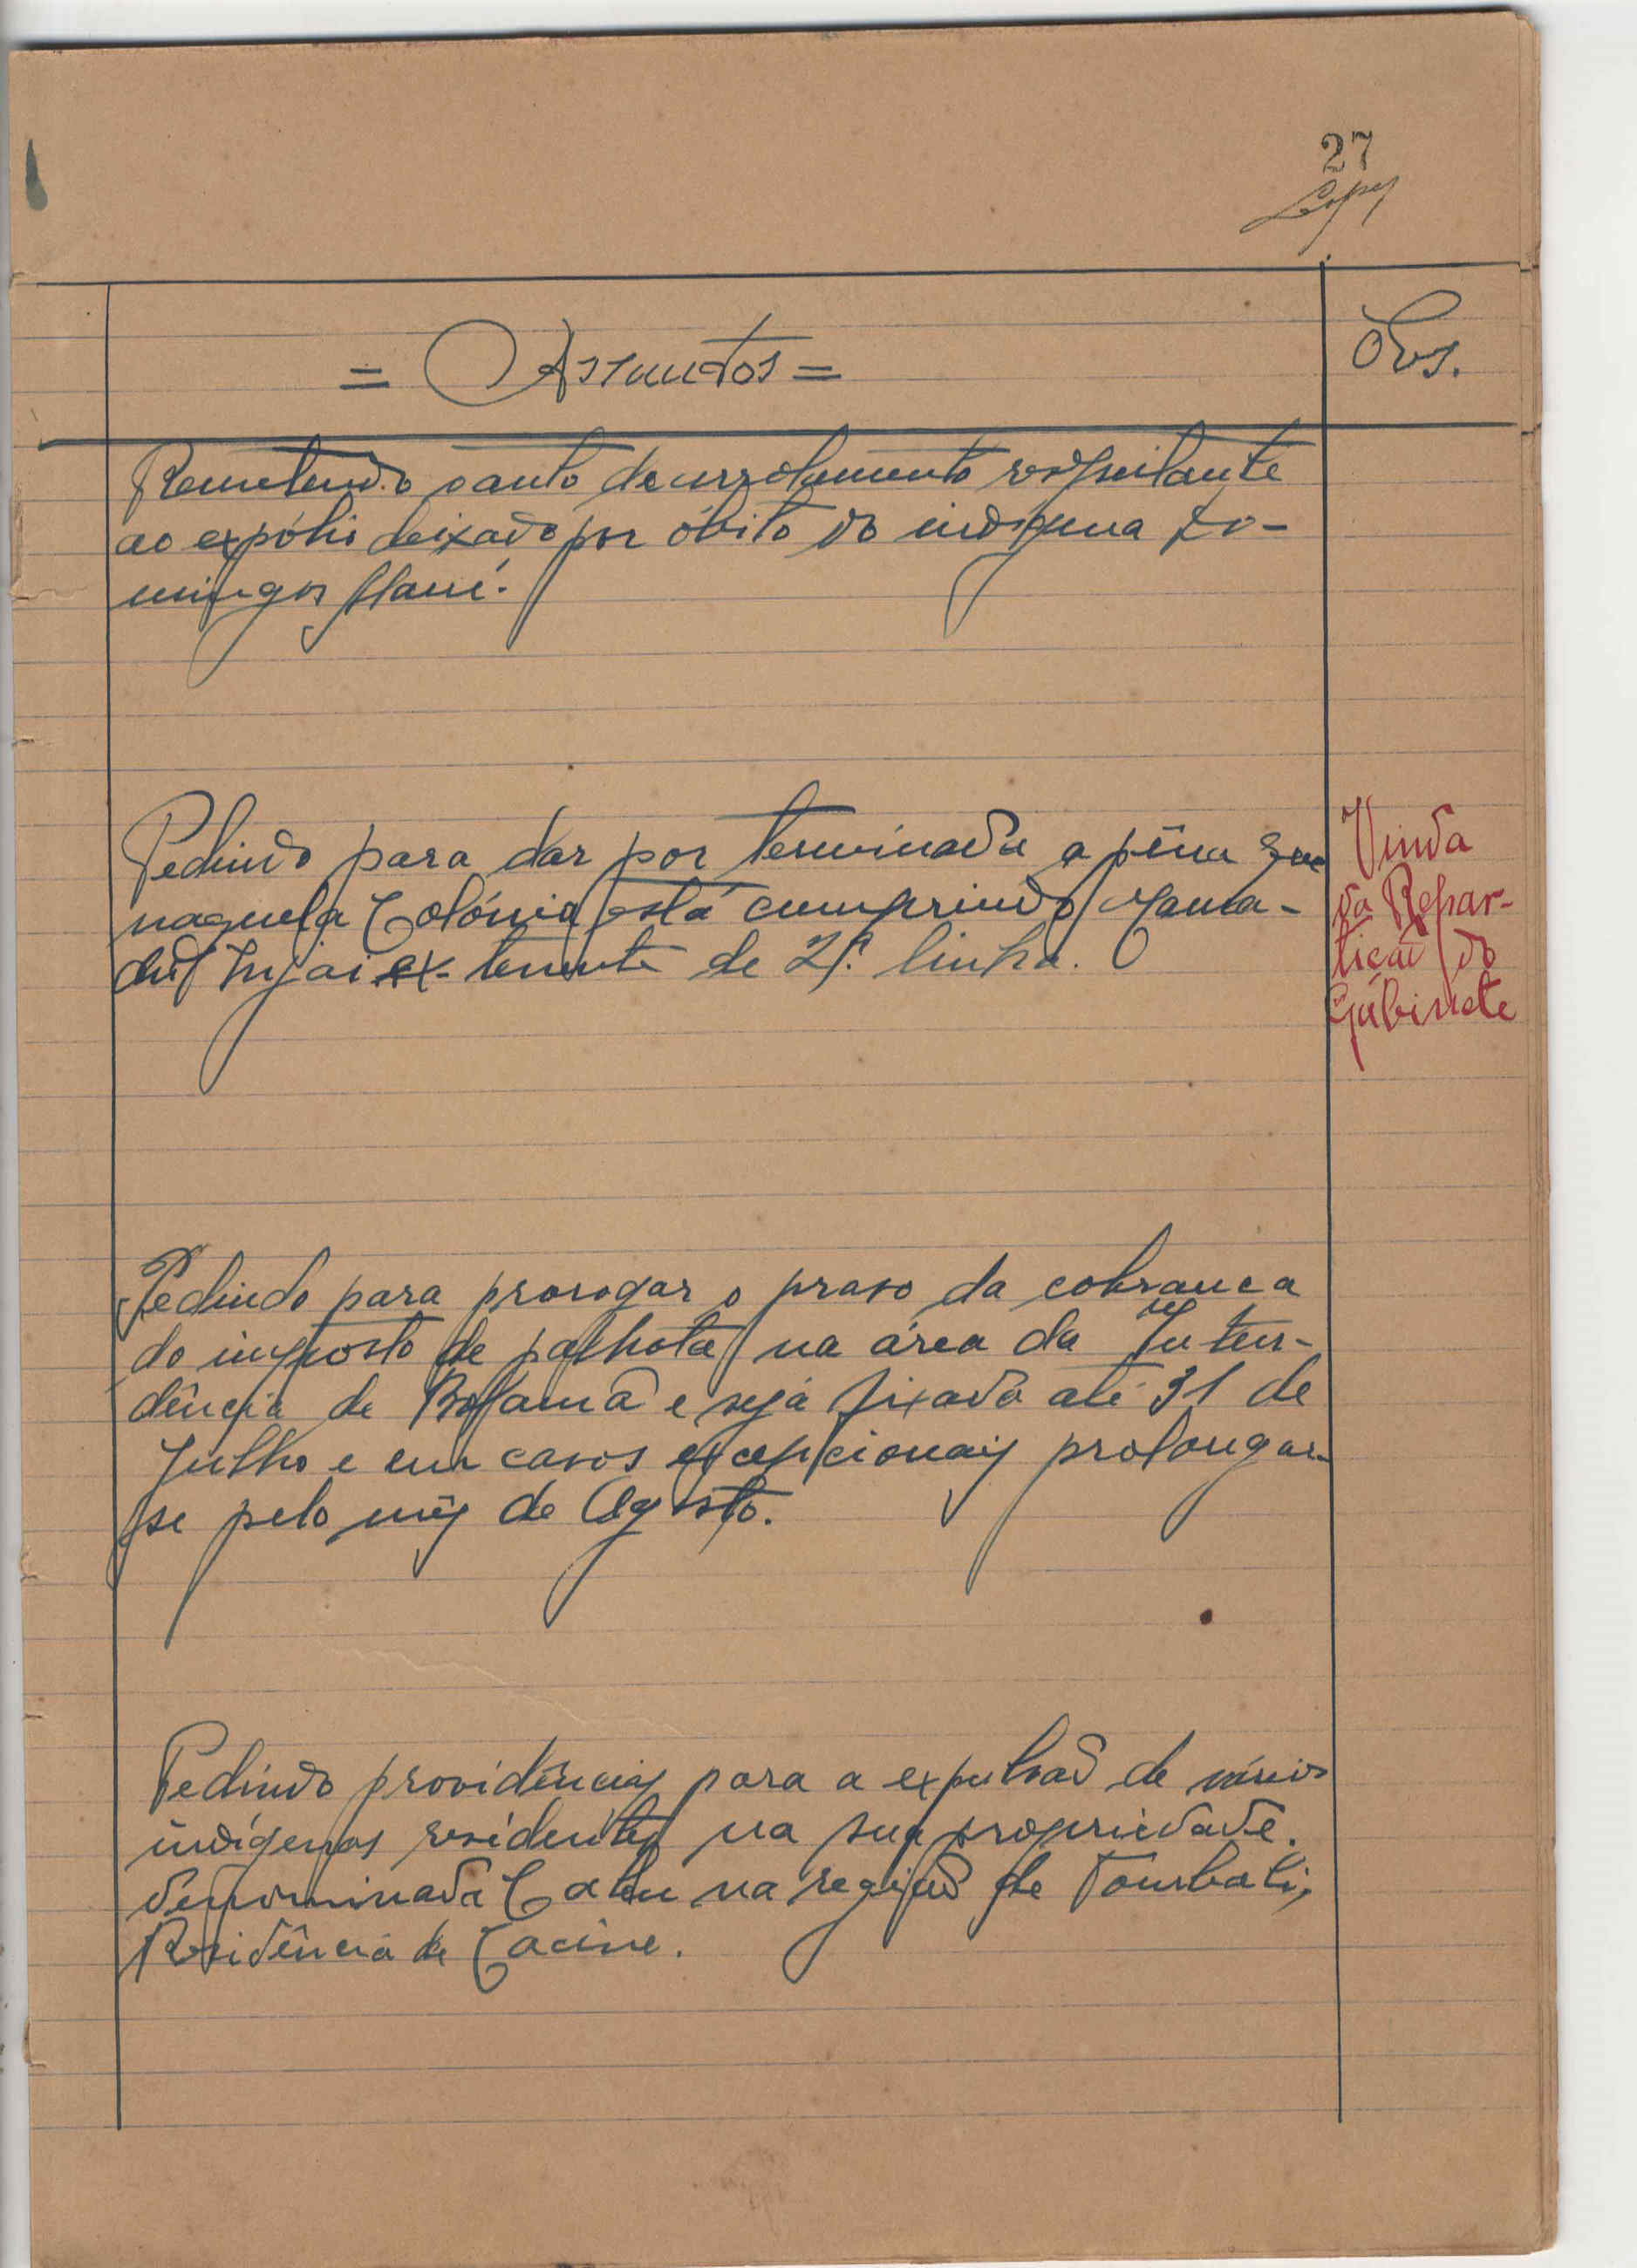 27
Lopes
= Assuntos =
Obs.
Remetendo o auto de arrolamento respeitante
ao expólio deixado por óbito do indígena Do-
mingos Mané.
Pedindo para dar por terminada a pêna que
naquela Colónia está cumprindo Mama-
dú Injai ex-tenente de 2ª. linha.
Vinda
da Repar-
tição do
Gabinete
Pedindo para prorogar o praso da cobranca
do imposto de palhota na área da Inten-
dência de Bolama e seja fixado até 31 de
Julho e em casos excepcionais prolongar-
se pelo mês de Agosto.
Pedindo providências para a expulsão de vários
indígenas residentes na sua propriedade.
denominada na região de Tombali,
Residência de Cacine.